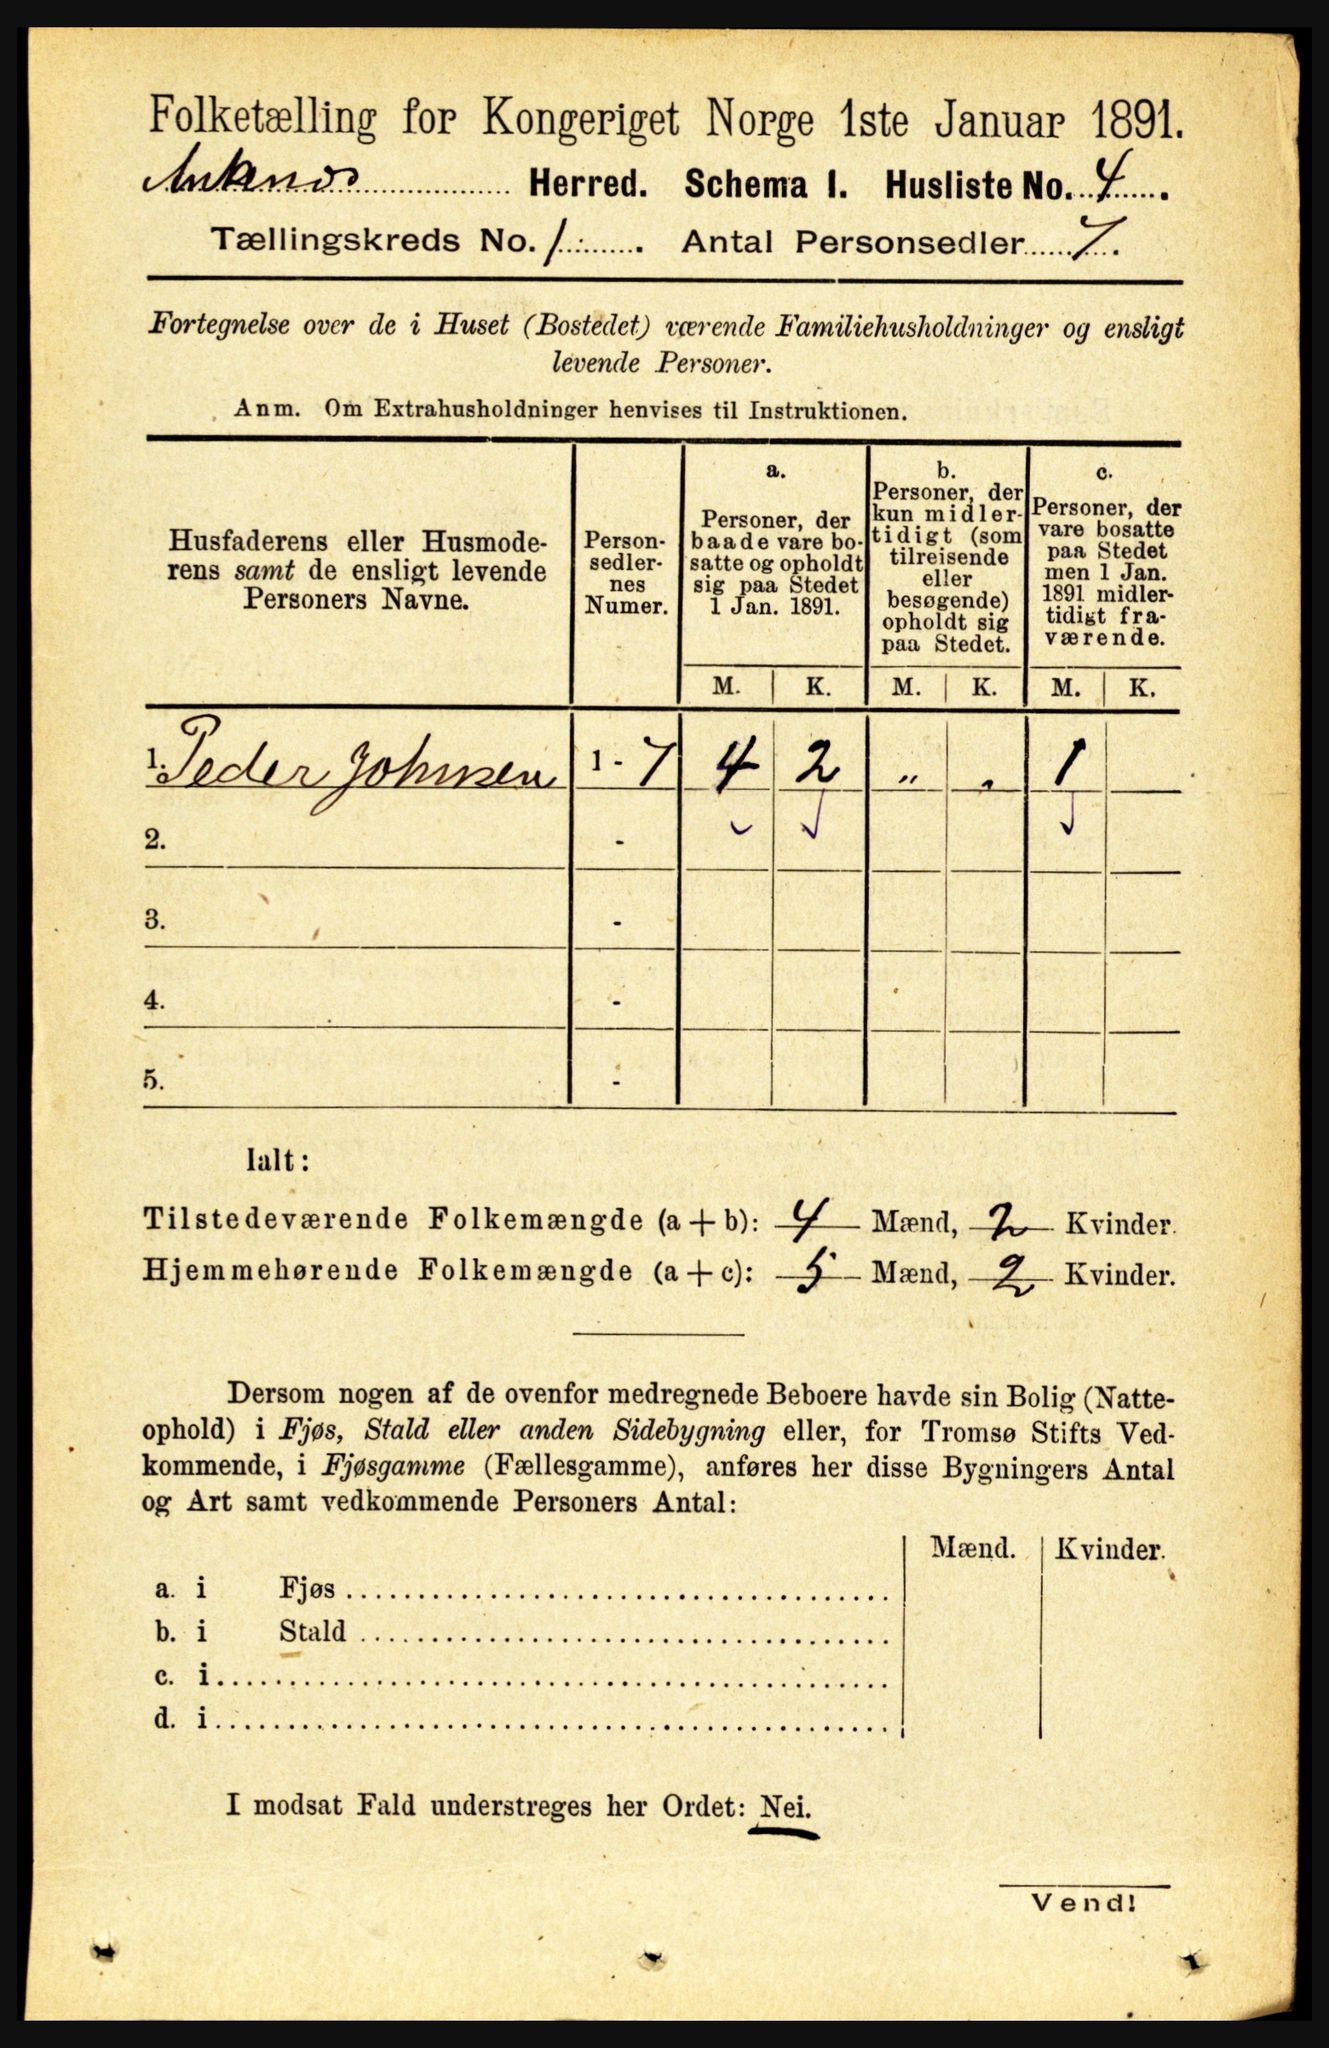 Folketælling for Kongeriget Norge 1ste Januar 1891.
Herred. Schema I. Husliste No. 4.
Tællingskreds No. 1. Antal Personsedler 7.
Fortegnelse over de i Huset (Bostedet) værende Familiehusholdninger og ensligt
levende Personer.
Anm. Om Extrahusholdninger henvises til Instruktionen.
Husfaderens eller Husmode-
rens samt de ensligt levende
Personers Navne.
Person-
sedler-
nes
Numer.
a.
Personer, der
baade vare bo-
satte og opholdt
sig paa Stedet
1 Jan. 1891.
b.
Personer, der
kun midler-
tidigt (som
tilreisende
eller
besøgende)
opholdt sig
paa Stedet.
c.
Personer, der
vare bosatte
paa Stedet
men 1 Jan.
1891 midler-
tidigt fra-
værende.
M. K. M. K. M. K.
1. Peder Johnsen 1 - 7 4 2 „ „ 1
2. -
3. -
4. -
5. -
Ialt:
Tilstedeværende Folkemængde (a + b): 4 Mænd, 2 Kvinder.
Hjemmehørende Folkemængde (a + c): 5 Mænd, 2 Kvinder.
Dersom nogen af de ovenfor medregnede Beboere havde sin Bolig (Natte-
ophold) i Fjøs, Stald eller anden Sidebygning eller, for Tromsø Stifts Ved-
kommende, i Fjøsgamme (Fællesgamme), anføres her disse Bygningers Antal
og Art samt vedkommende Personers Antal:
Mænd. Kvinder.
a. i Fjøs
b. i Stald
c. i
d. i
I modsat Fald understreges her Ordet: Nei.
Vend!